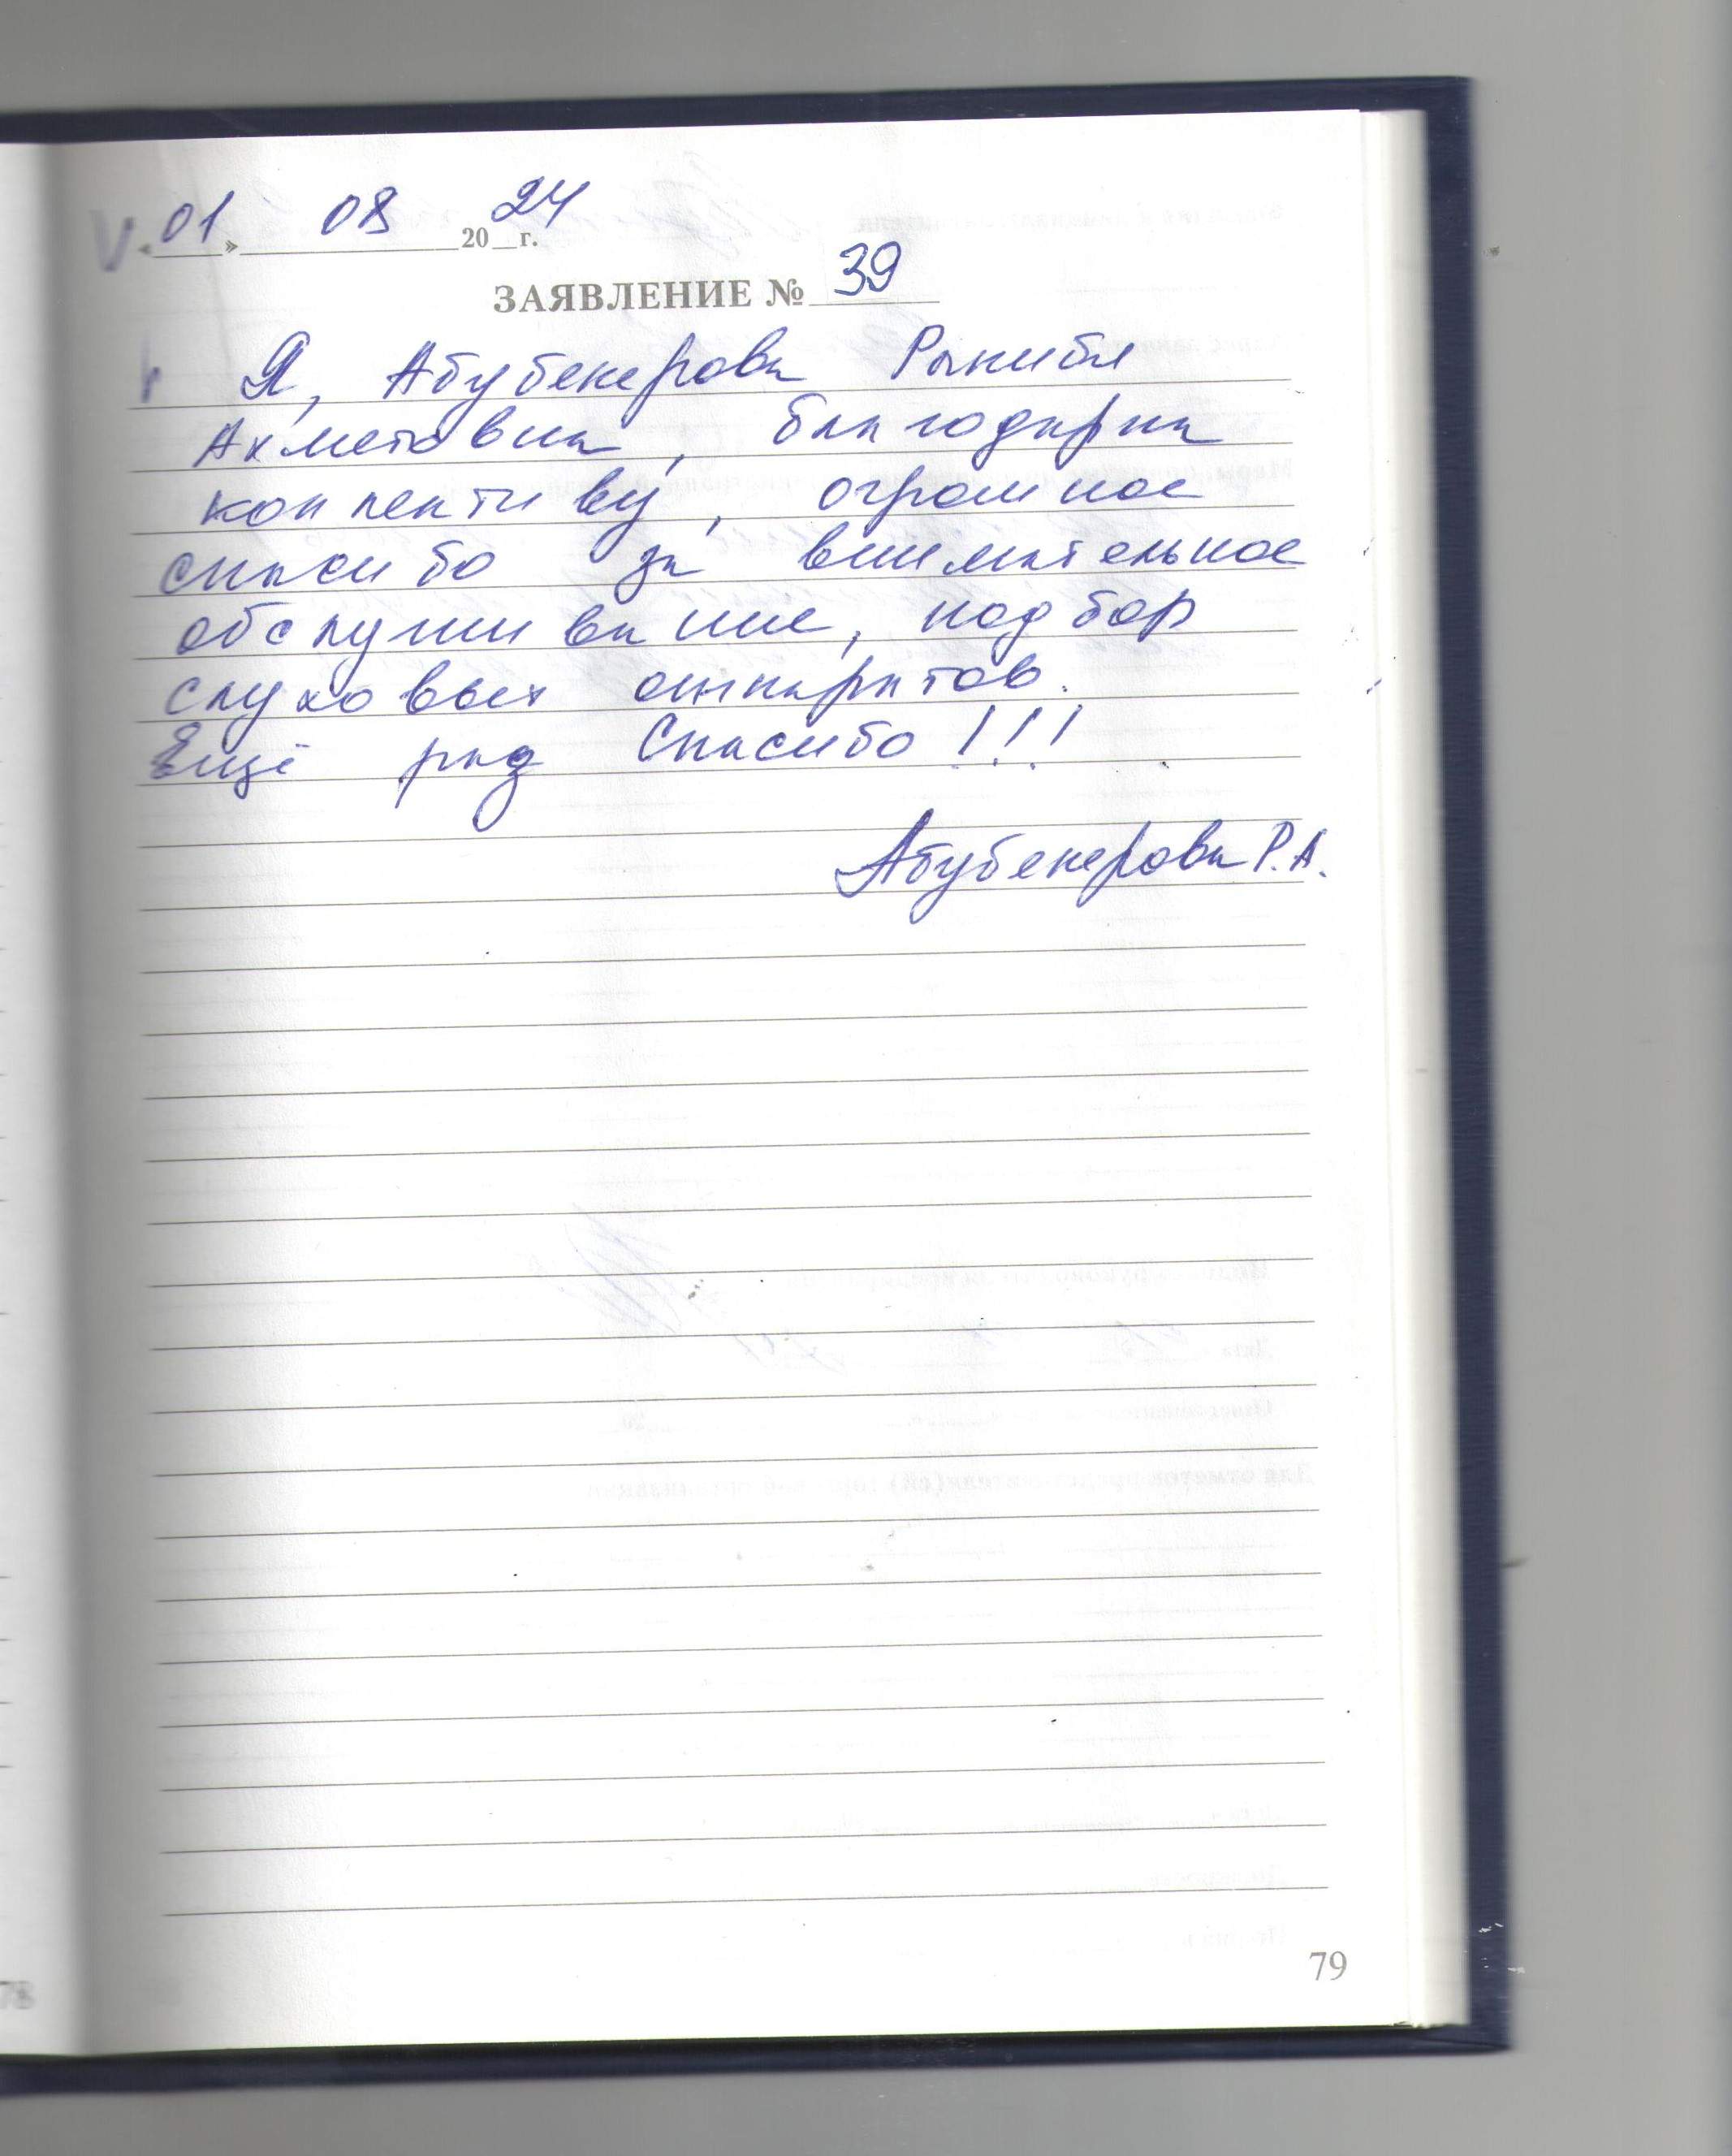 «01» 08 2024 г.
ЗАЯВЛЕНИЕ № 39
Я, Абубекерова
Ахметовна, благодарна
коллективу, огромное
спасибо за внимательное
обслуживание, подбор
слуховых аппаратов.
Ещё раз Спасибо!!!
Абубекерова Р.А.
79
78